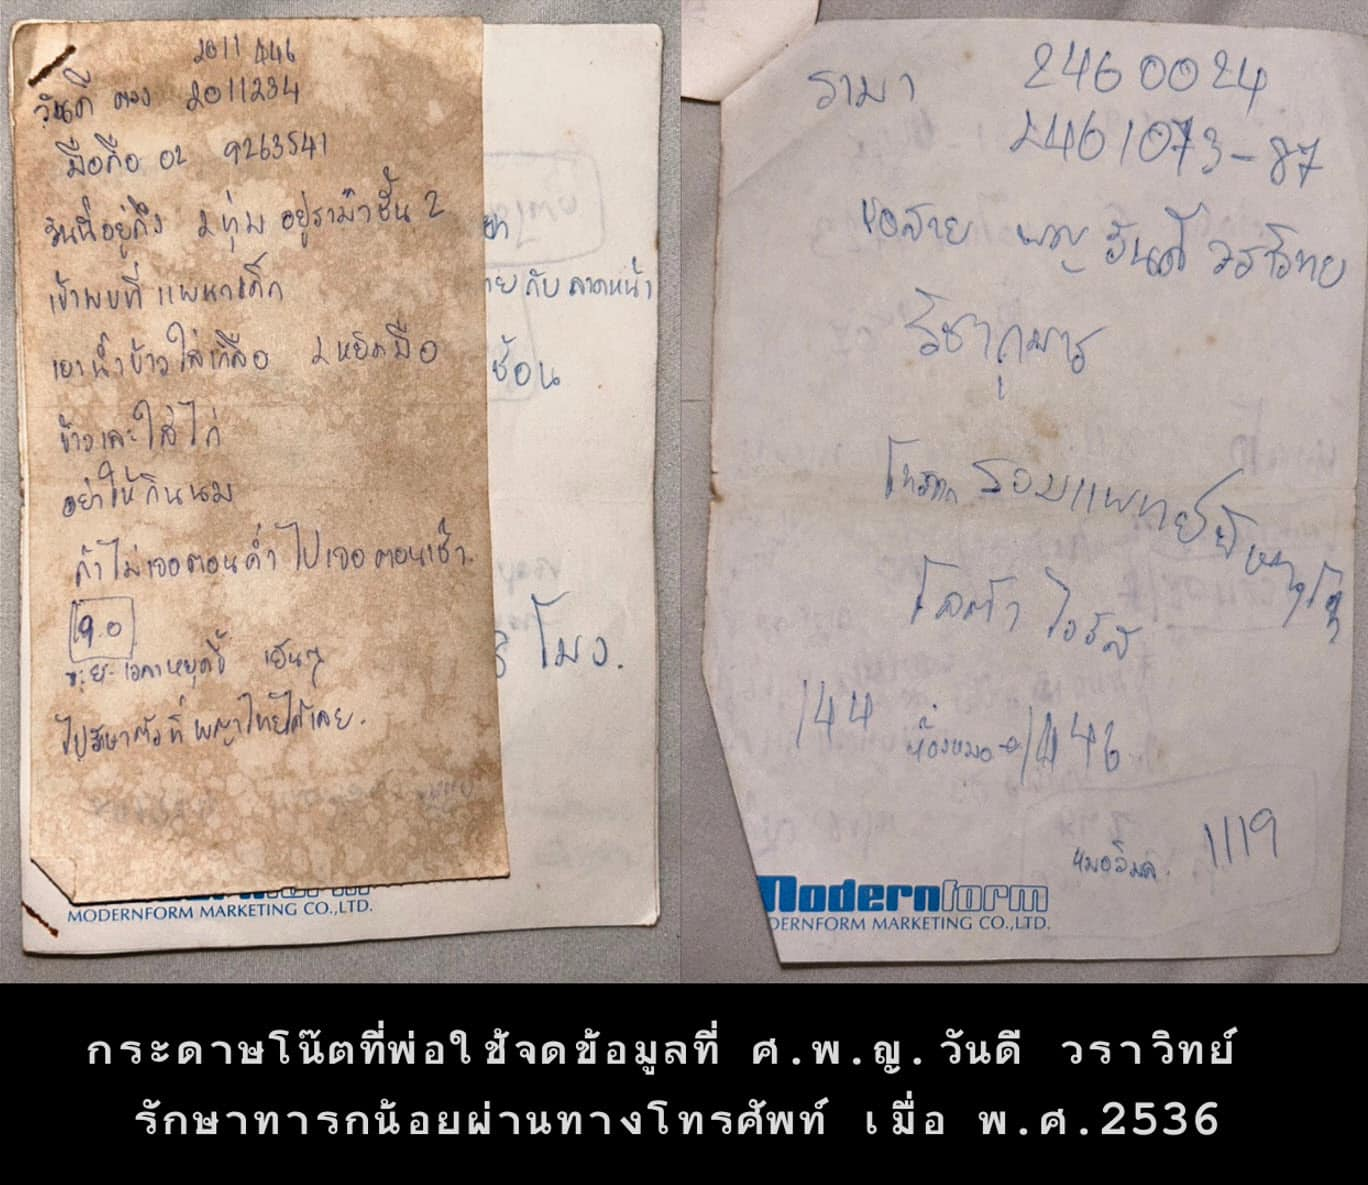 2011446
วันดี ตรง 2011234
มือถือ 02 9263541
วันนี้อยู่ถึง 2 ทุ่ม อยู่รามาชั้น 2
เข้าพบที่แผนกเด็ก
เอาน้ำข้าวใส่เกลือ 2 หยิบมือ
ข้าวเละใส่ไก่
อย่าให้กินนม
ถ้าไม่เจอตอนค่ำ ไปเจอตอนเช้า.
9.0
ไปรักษาตัวที่ พญาไทยได้เลย.
กับ ลาดหน้า
ช้อน
โมง.
MODERNFORM MARKETING CO.,LTD.
รามา 2460024
2461073-87
ขอสาย พญ วันดี วราวิทย
วิชากุมาร
โรตาไวรัส
144 ห้องหมอ 1446
1119
Modernform
DERNFORM MARKETING CO.,LTD.
กระดาษโน๊ตที่พ่อใช้จดข้อมูลที่ ศ.พ.ญ.วันดี วราวิทย์
รักษาทารกน้อยผ่านทางโทรศัพท์ เมื่อ พ.ศ.2536